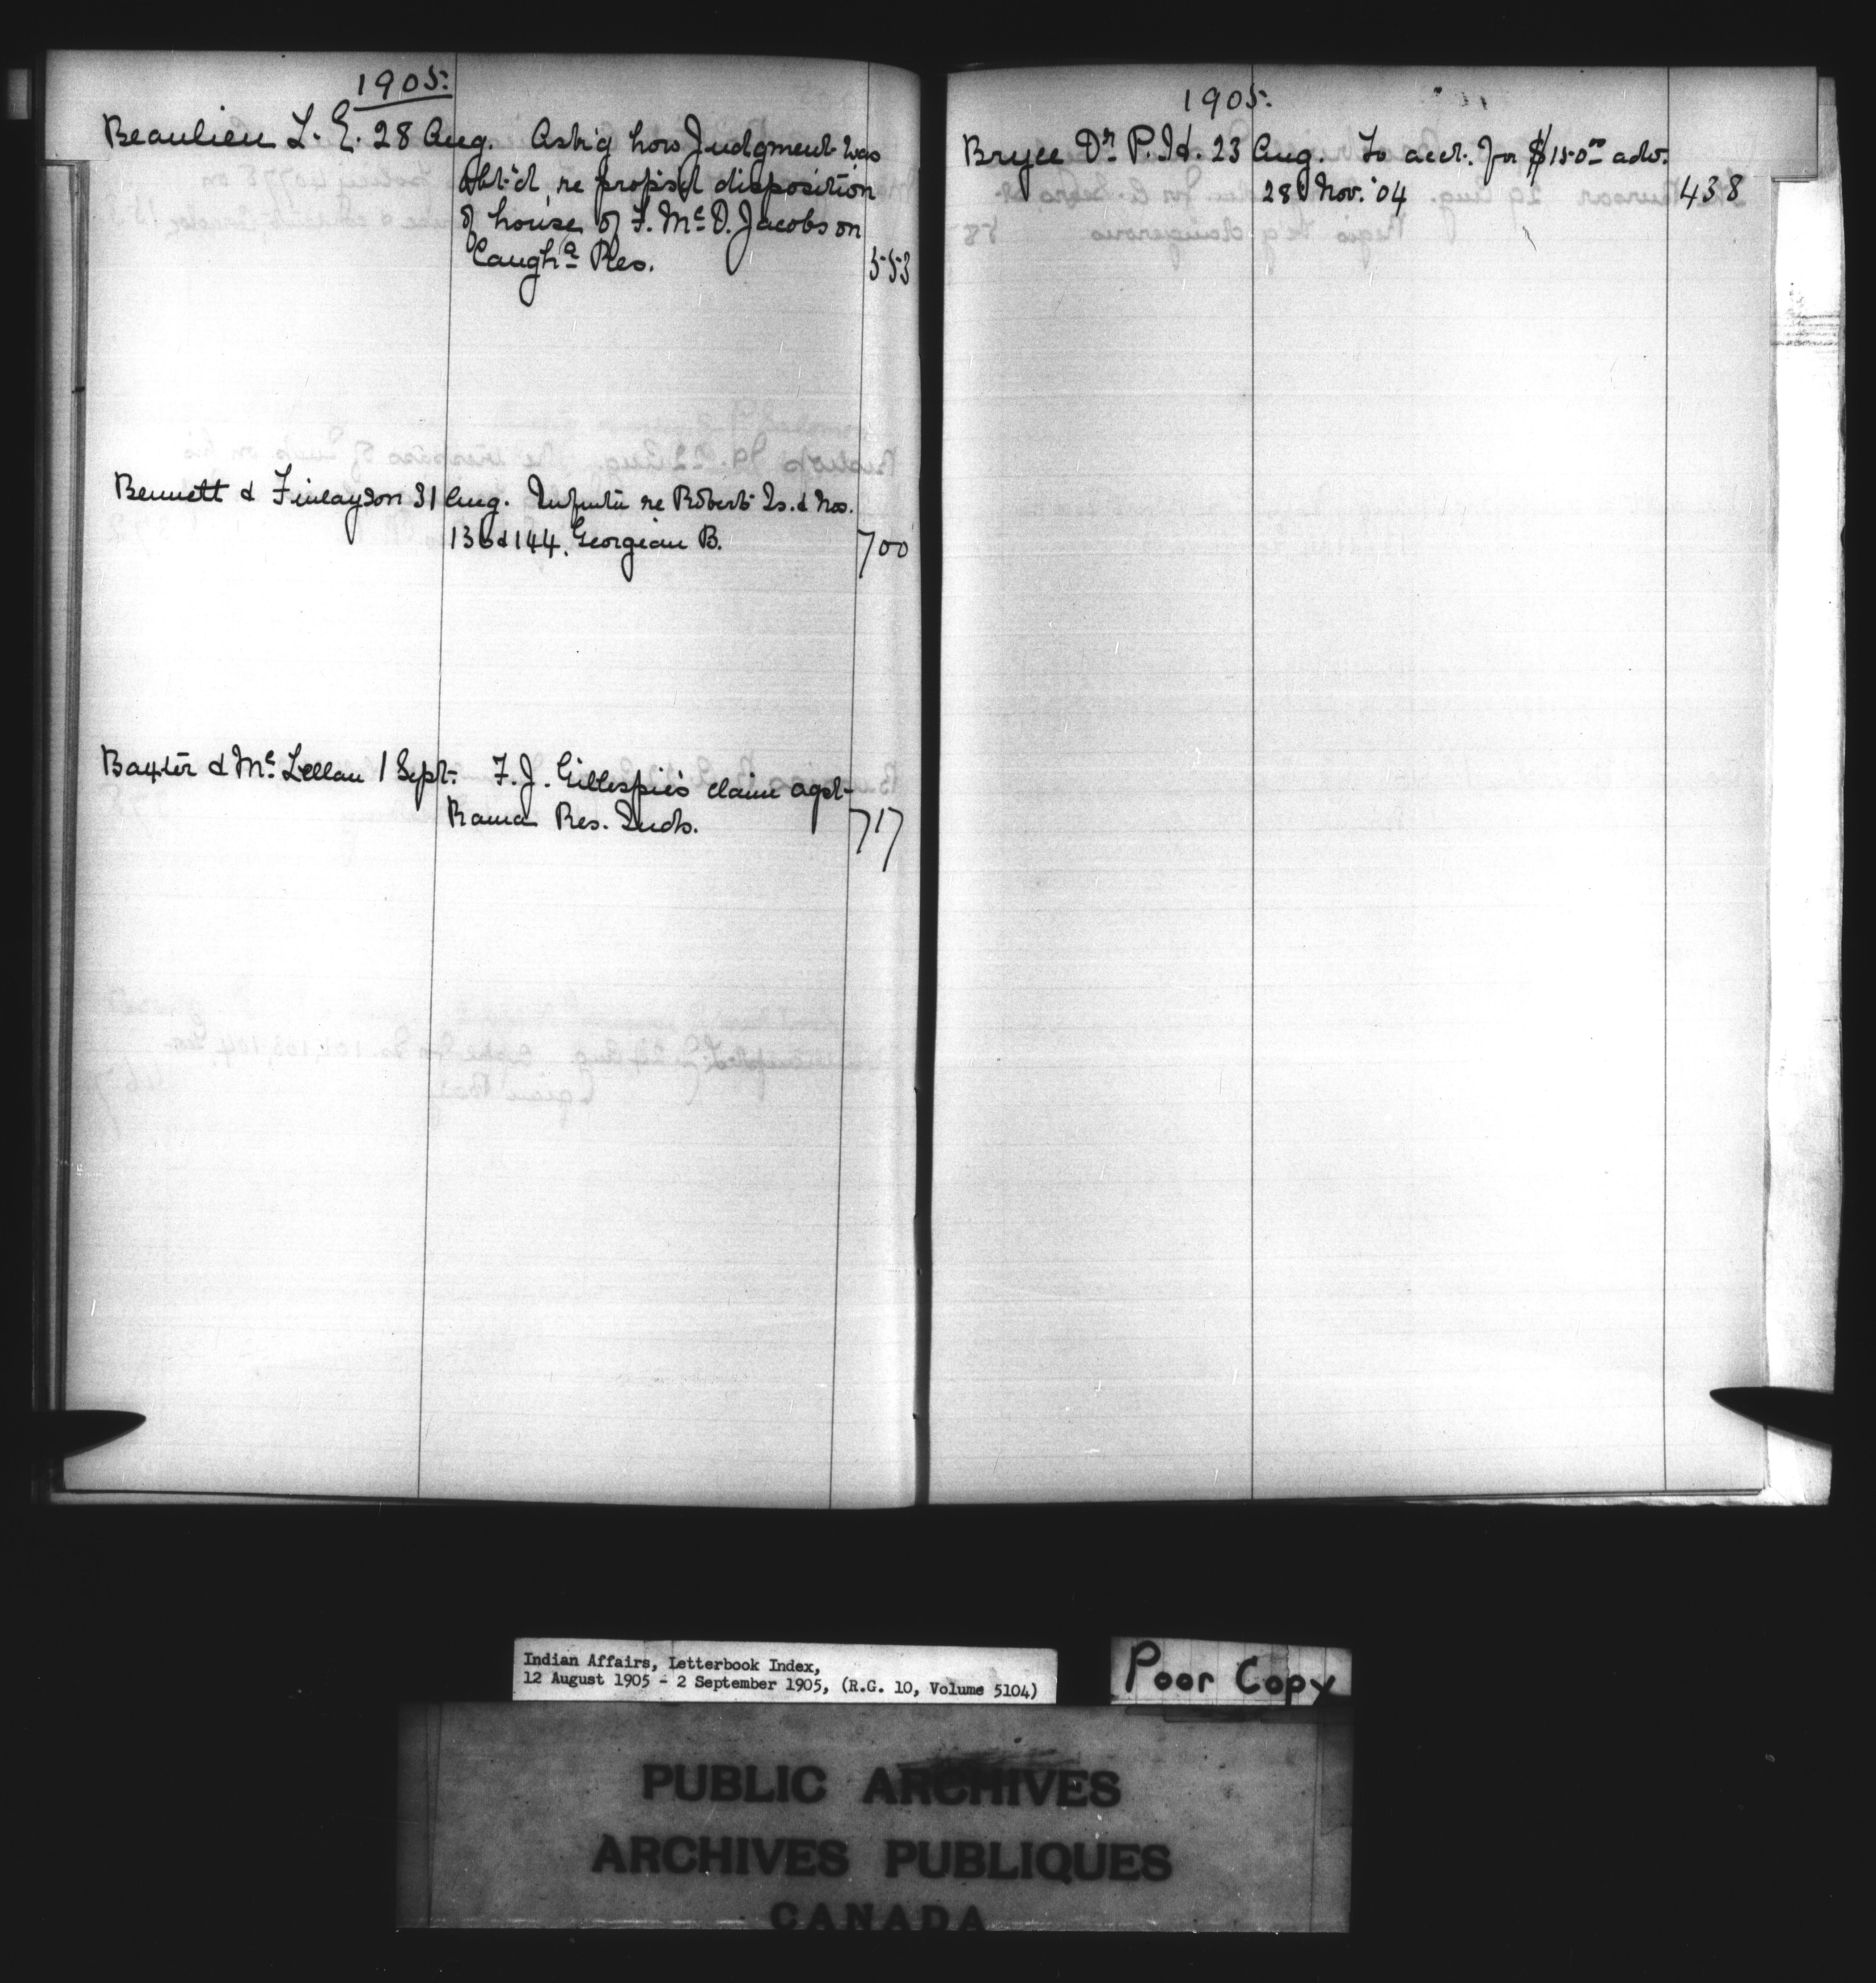 1905.
Beaulieu L. E. 28 Aug. Ask'g how Judgment was
obt'd re propsd disposition
of house of F. Mc D. Jacobs on
Caugha Res. 553
Bennett & Finlayson 31 Aug. re Robert Is. & Nos.
136 & 144, Georgian B. 700
Baxter & Mc Lellan 1 Sept. F. J. Gillespie's claim agst
Rama Res. Inds. 717
1905.
Bryce Dr P. H. 23 Aug. To acct. for $150.00 adv.
28 Nov. '04 438
Indian Affairs, Letterbook Index,
12 August 1905 - 2 September 1905, (R.G. 10, Volume 5104)
Poor Copy
PUBLIC ARCHIVES
ARCHIVES PUBLIQUES
CANADA